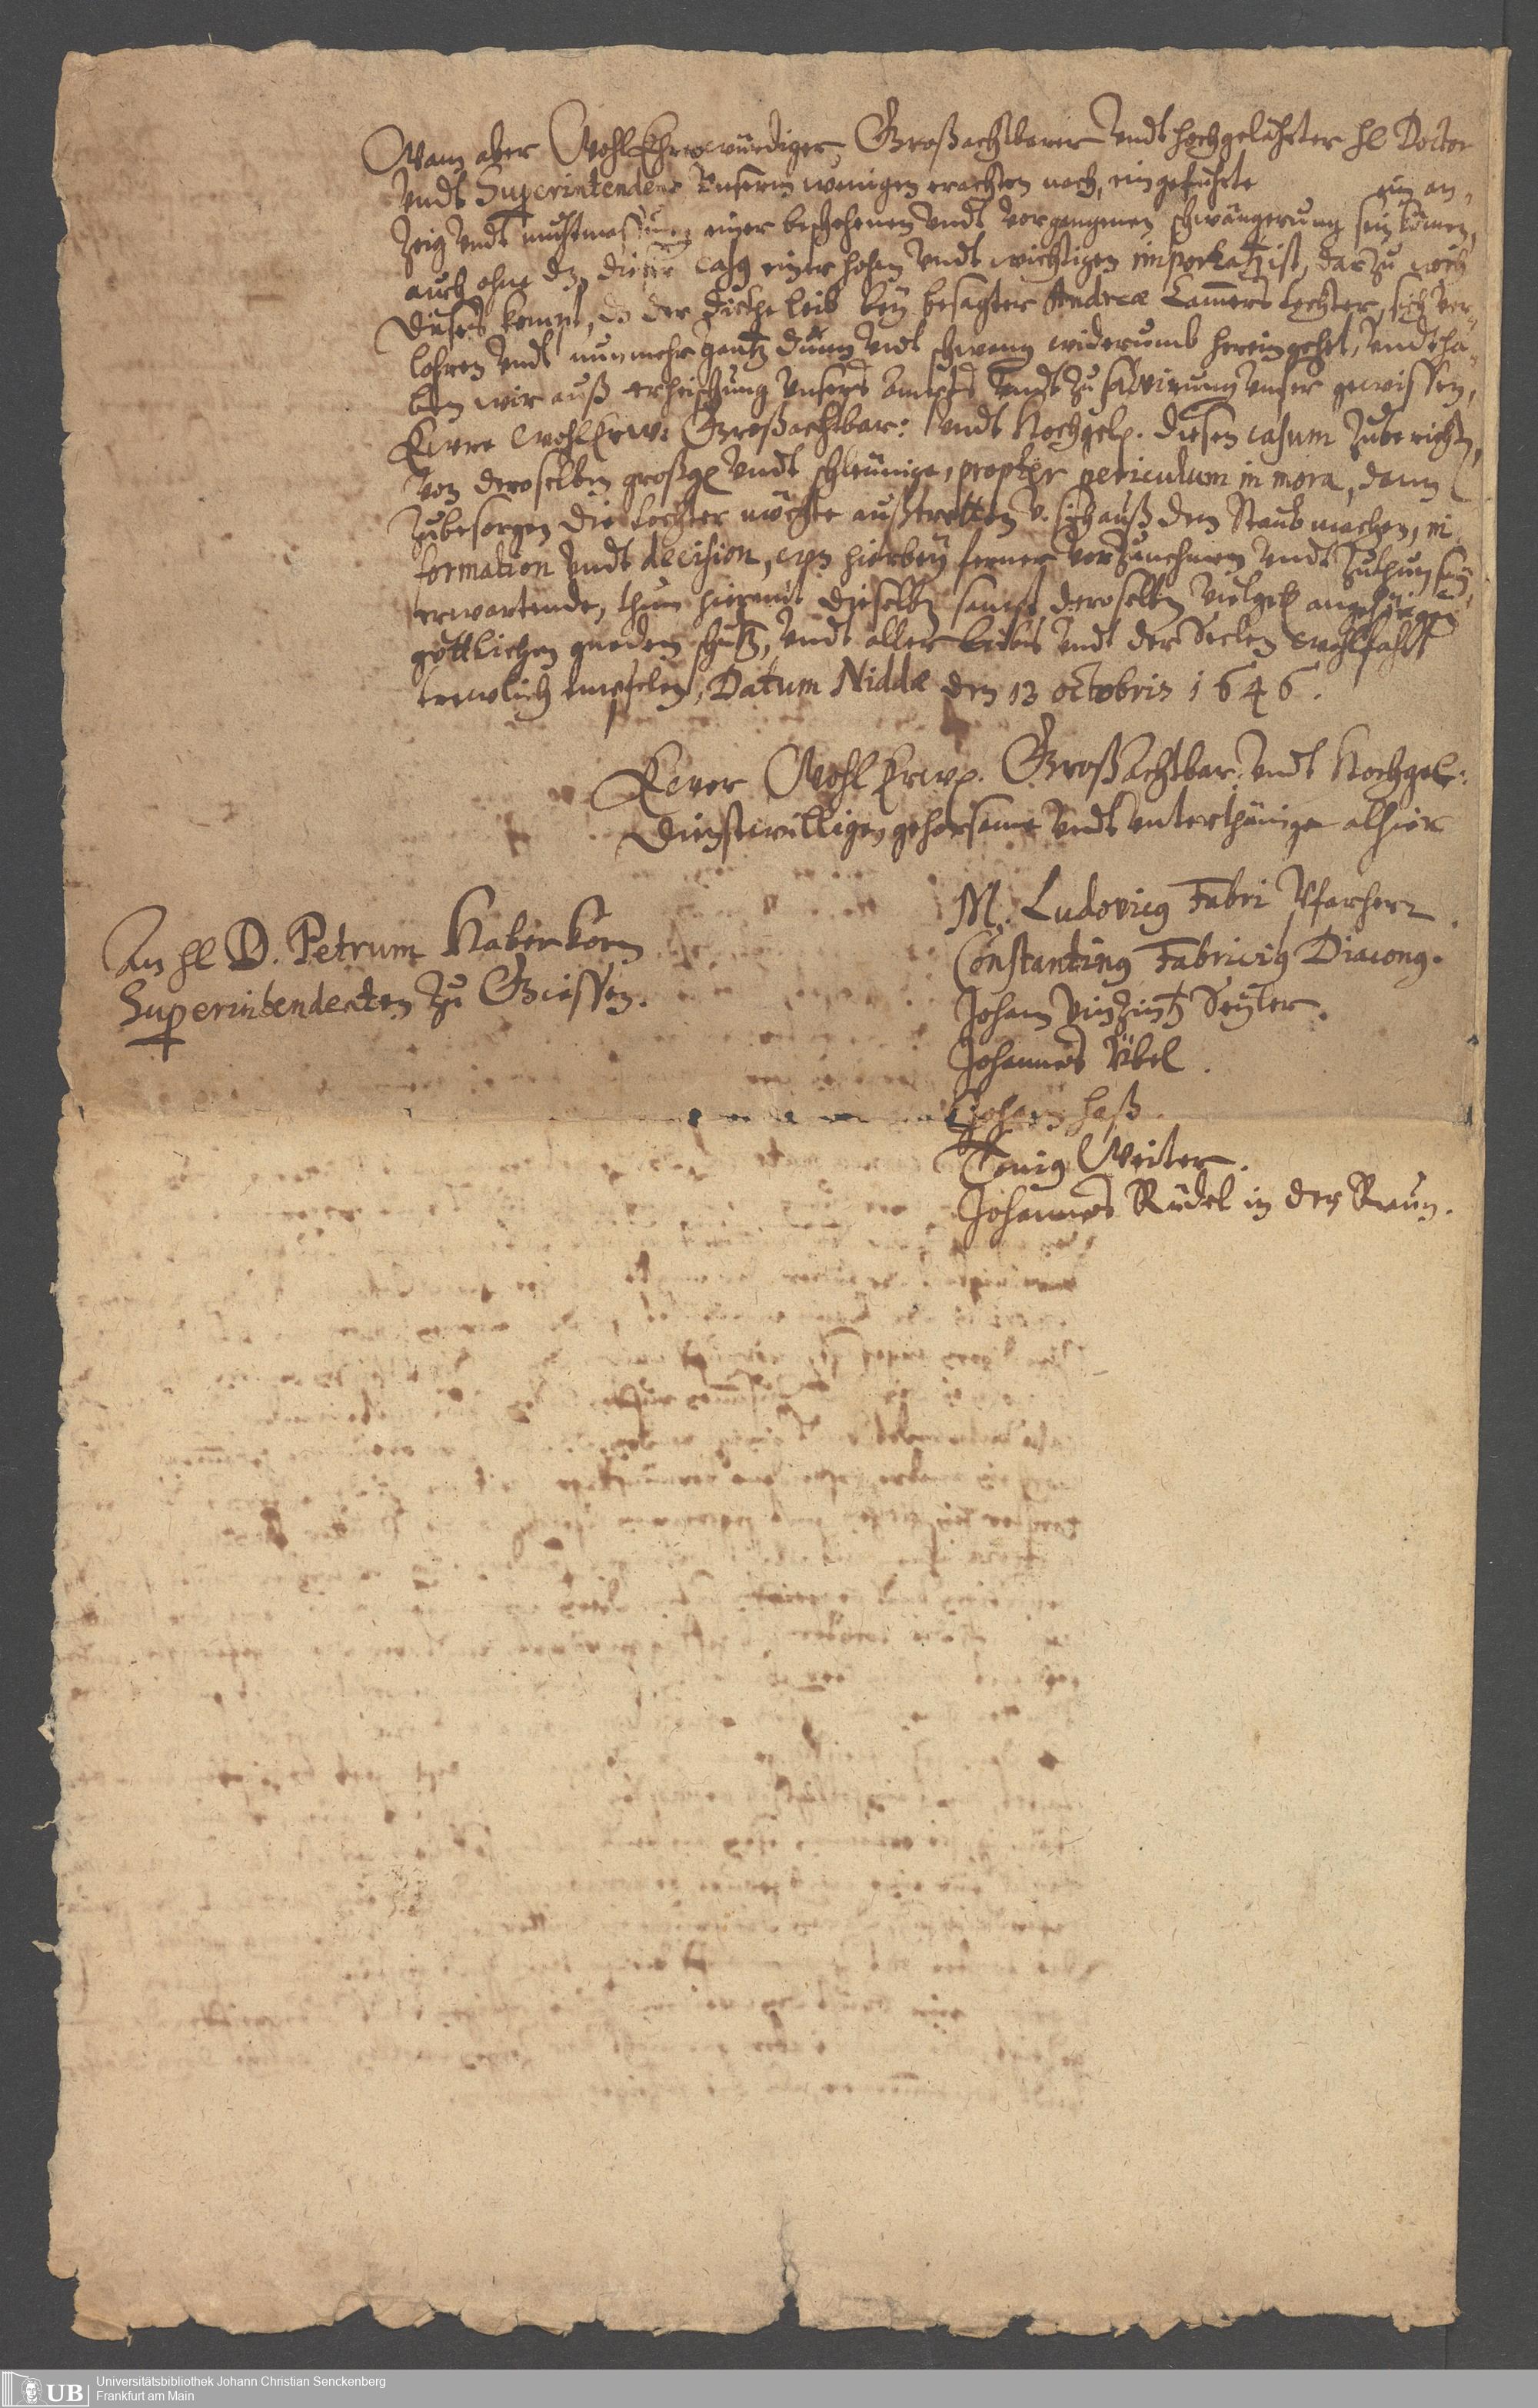 Wann aber WohlEhrwürdiger, Großachtbarer undt hochgelährter H Doctor
undt Superintendens unserm wenigen erachten nach, eingeführte ein an-
zeig undt muthmassung einer beschehenen undt vorgangenen schwängerung sein können,
auch ohne dz, dieser casus einer hohen undt wichtigen importatz ist, darzu noch
dieses kompt, dz der dicke leib bey besagter Andreæ Lammers tochter, sich ver-
lohren undt nunmehr gantz dünn undt schwang widerumb hereingehet, undt ha-
ben wir auß erheischung unsers ampts undt zu salvirung unser gewissen,
Ewre WohlErw: Großachtbar: undt Hochgel. diesen casum zuberichten,
von deroselben großg. undt schleunige, propter periculum in mora, dann
zubesorgen die tochter möchte außtretten v. sich auß dem Staub machen, in-
formation undt decision, wes hierbey ferner vorzunehmen undt zuthun sey,
erwartende, thun hiemit dieselbe sampt deroselben vielgel. angehörigen
göttlichen gnaden schutz, undt aller Leibs undt der Seelen wohlfahrt
trewlich empfelen, Datum Niddæ den 13 octobris 1646.
Ewer WohlErw. Großachtbar: undt Hochgel:
Dienstwillige, gehorsame undt unterthänige alhier
M. Ludovicus Fabri Pfarherr.
Constantinus Fabricius Diaconus.
Johann Vinzintz Seyler.
Johannes Übel.
Johann Haß.
Tönig Weiter.
Johannes Rüdel in der Raun.
An H D. Petrum Haberkorn
Superintendenten zu Giessen.
Universitätsbibliothek Johann Christian Senckenberg
Frankfurt am Main
UB